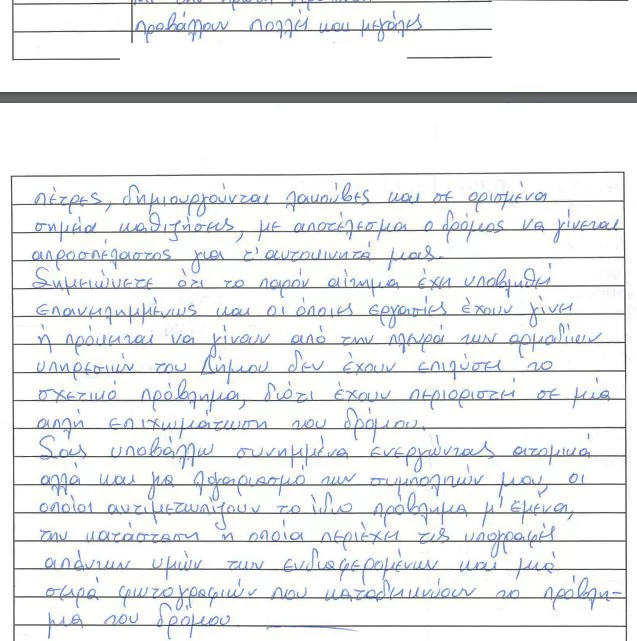 προβάλλουν πολλές και μεγάλες
πέτρες, δημιουργούνται λακούβες και σε ορισμένα
σημεία καθιζήσεις, με αποτέλεσμα ο δρόμος να γίνεται
απροσπέλαστος για τ' αυτοκινητά μας.
Σημειώνετε ότι το παρόν αίτημα έχει υποβληθεί
επανειλημμένως και οι όποιες εργασίες έχουν γίνει
ή πρόκειται να γίνουν από την πλευρά των αρμοδίων
υπηρεσιών του Δήμου δεν έχουν επιλύσει το
σχετικό πρόβλημα, διότι έχουν περιοριστεί σε μία
απλή επιχωμάτωση του δρόμου.
Σας υποβάλλω συνημμένα ενεργώντας ατομικά
αλλά και για λογαριασμό των συμπολιτών μου, οι
οποίοι αντιμετωπίζουν το ίδιο πρόβλημα μ' εμένα,
την κατάσταση η οποία περιέχει τις υπογραφές
απάντων υμών των ενδιαφερομένων και μιά
σειρά φωτογραφιών που καταδεικνύουν το πρόβλη-
μα του δρόμου.